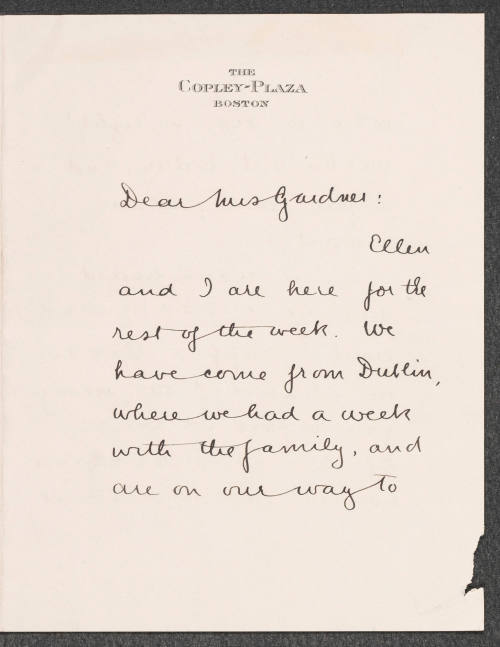 THE
COPLEY-PLAZA
BOSTON
Dear Mrs Gardner:
Ellen
and I are here for the
rest of the week. We
have come from Dublin,
where we had a week
with the family, and
are on our way to